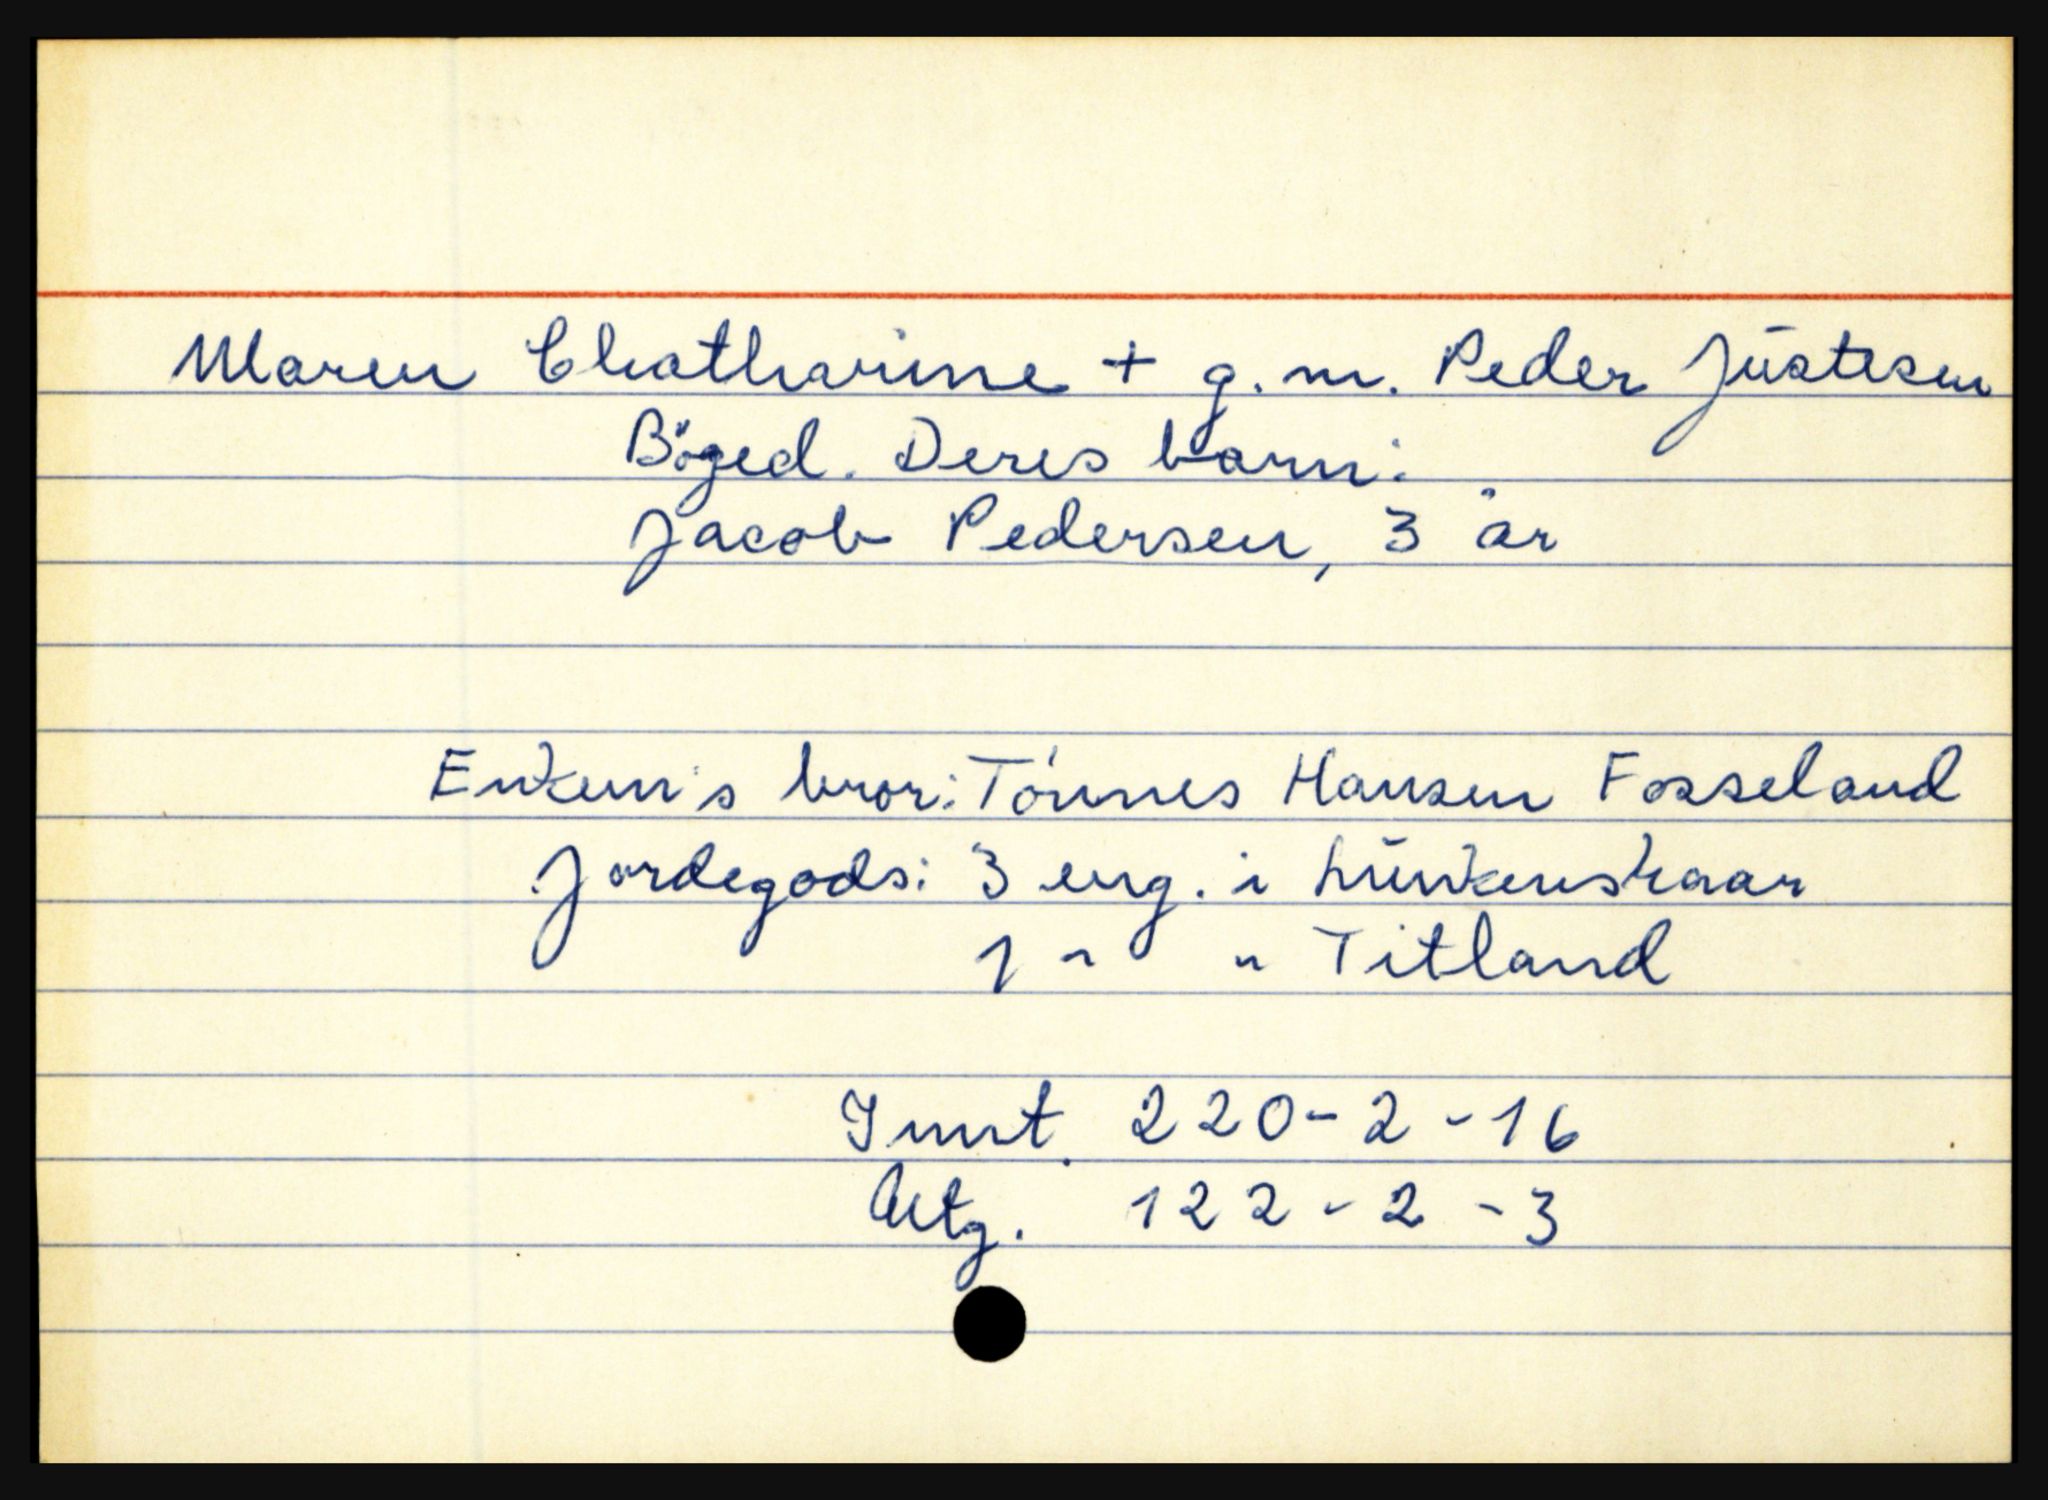 Maren Chatharine + g.m. Peder Justesen
Böged. Deres barn:
Jacob Pedersen, 3 år
Enken's bror: Tönnes Hansen Fosseland
Jordegods: 3 eng. i Lunkenskaar
1 " " Titland
Innt. 220-2-16
Utg. 122-2-3